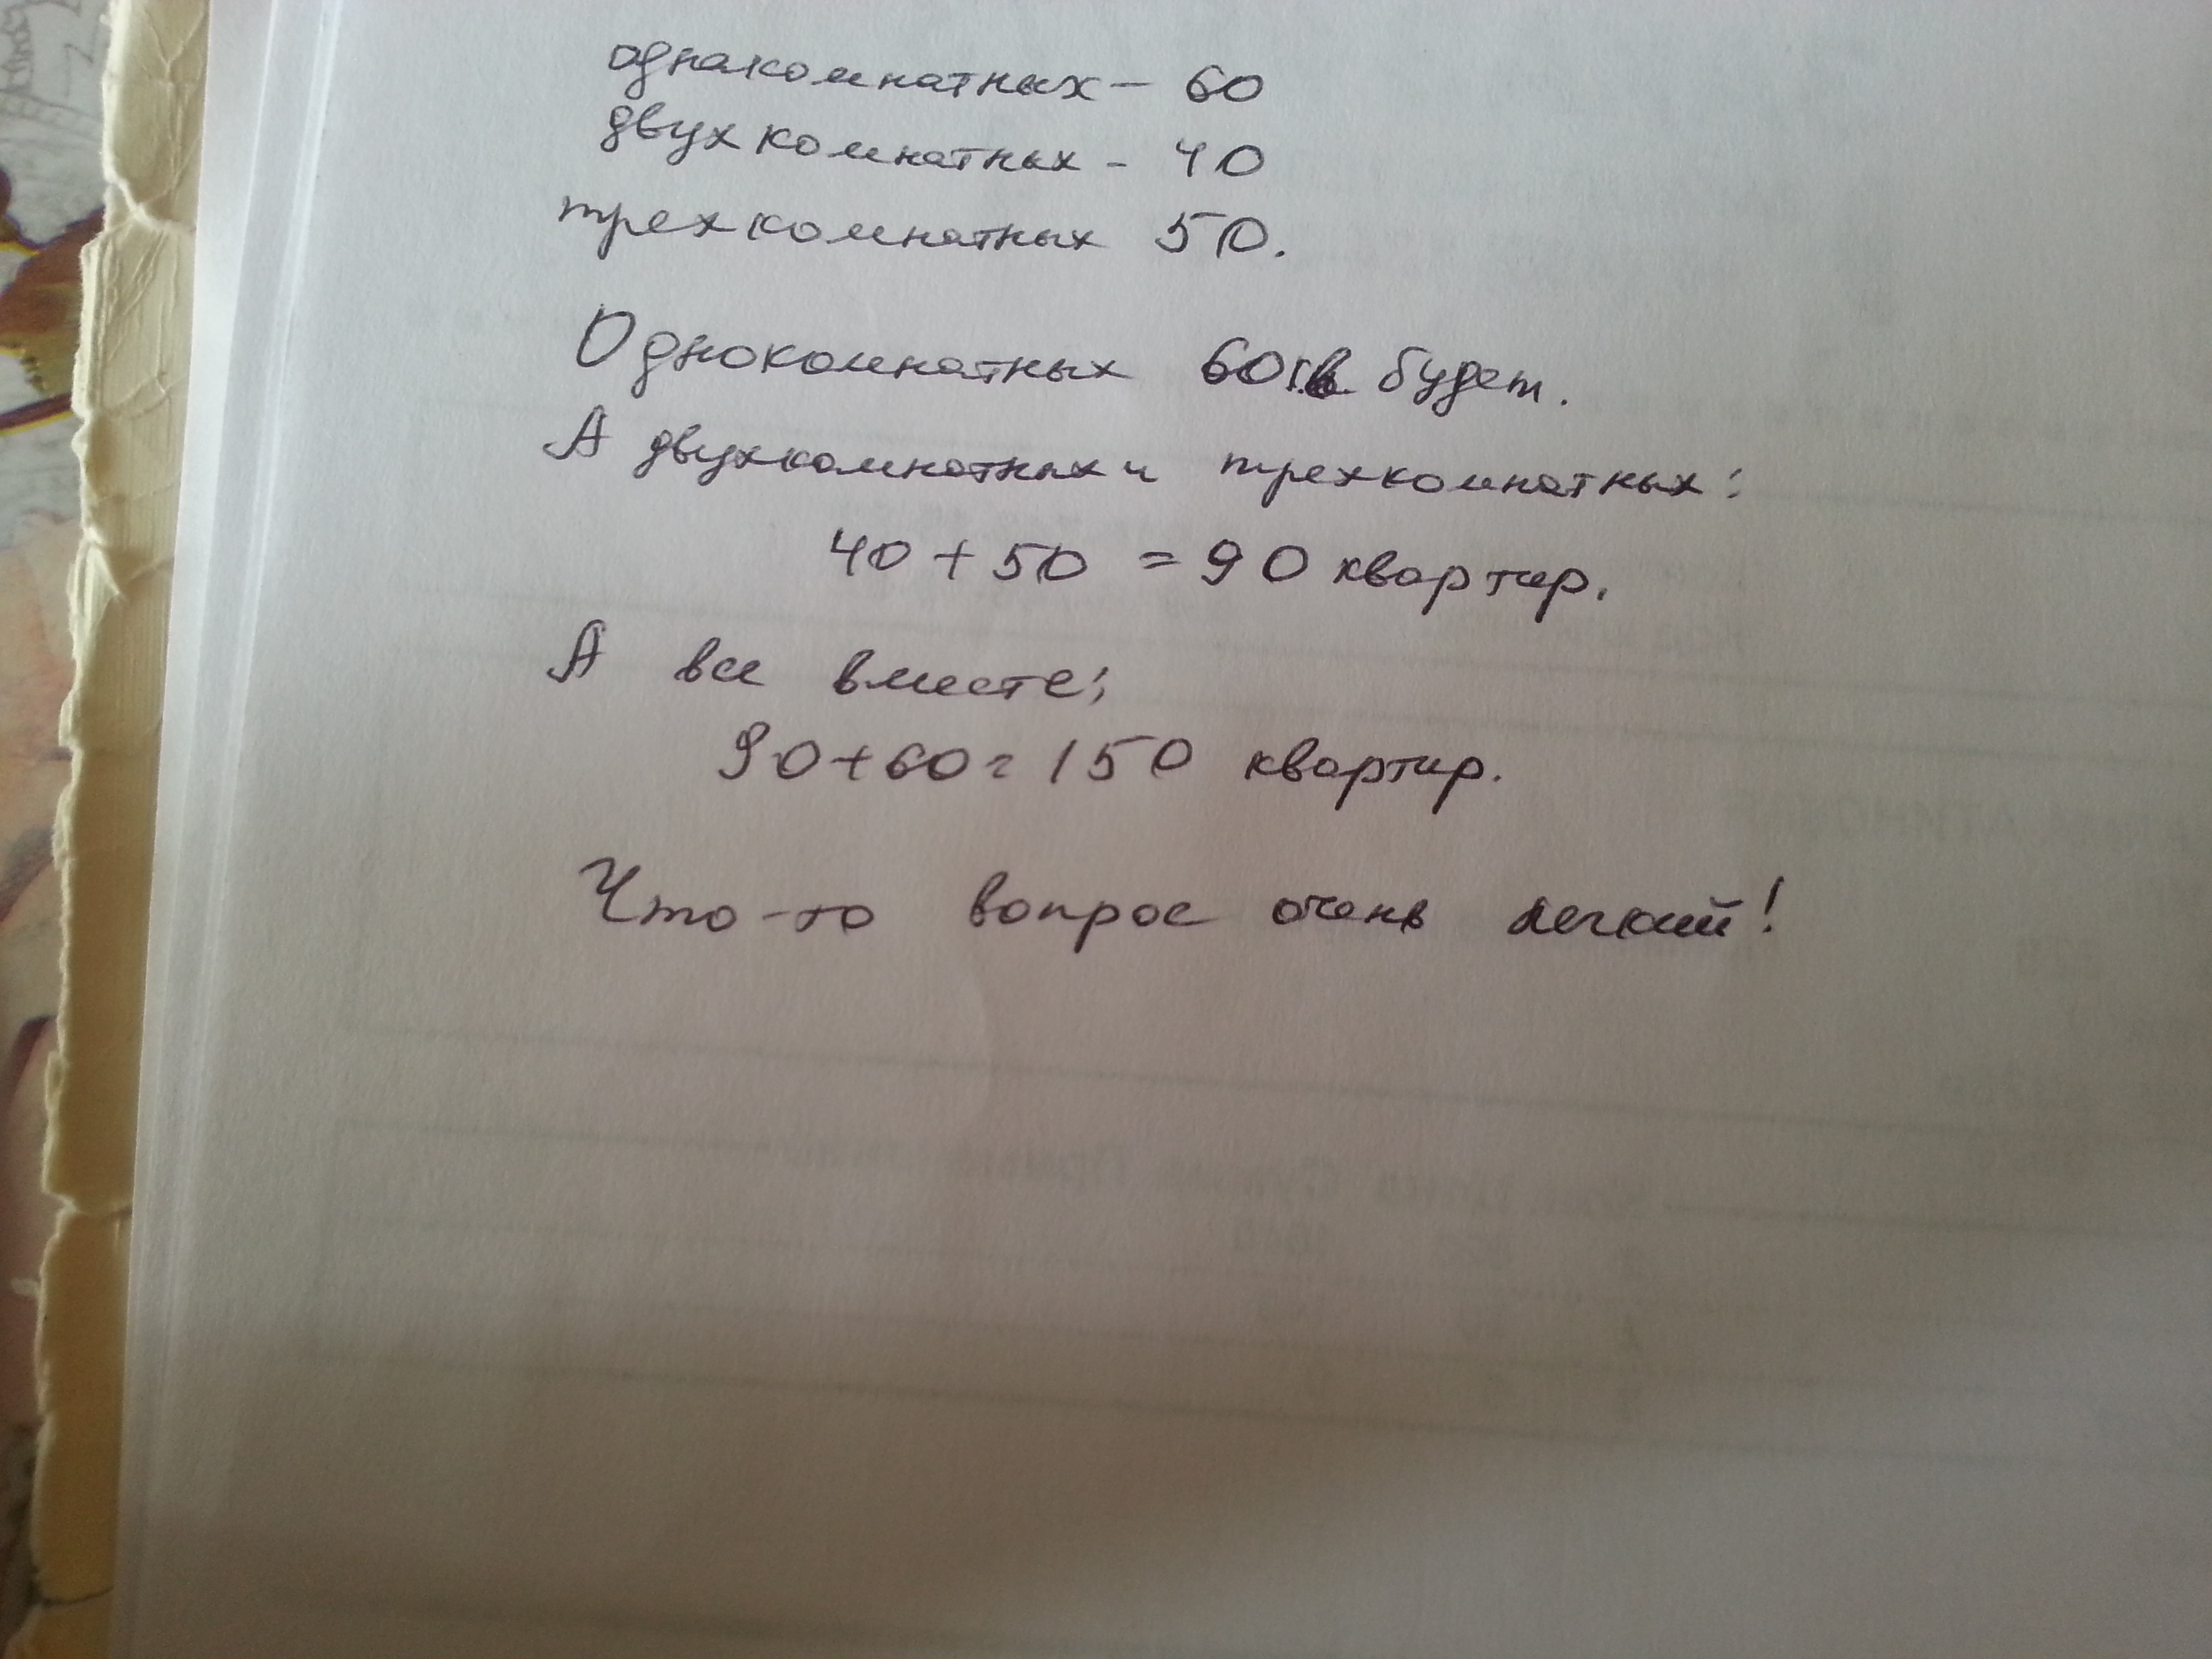 однакомнатных - 60
двухкомнатных - 40
трехкомнатных 50.
Однокомнатных 60 будет.
А двухкомнатных и трехкомнатных:
40 + 50 = 90 квартир.
А все вместе:
90+60= 150 квартир.
Что-то вопрос очень легкий!